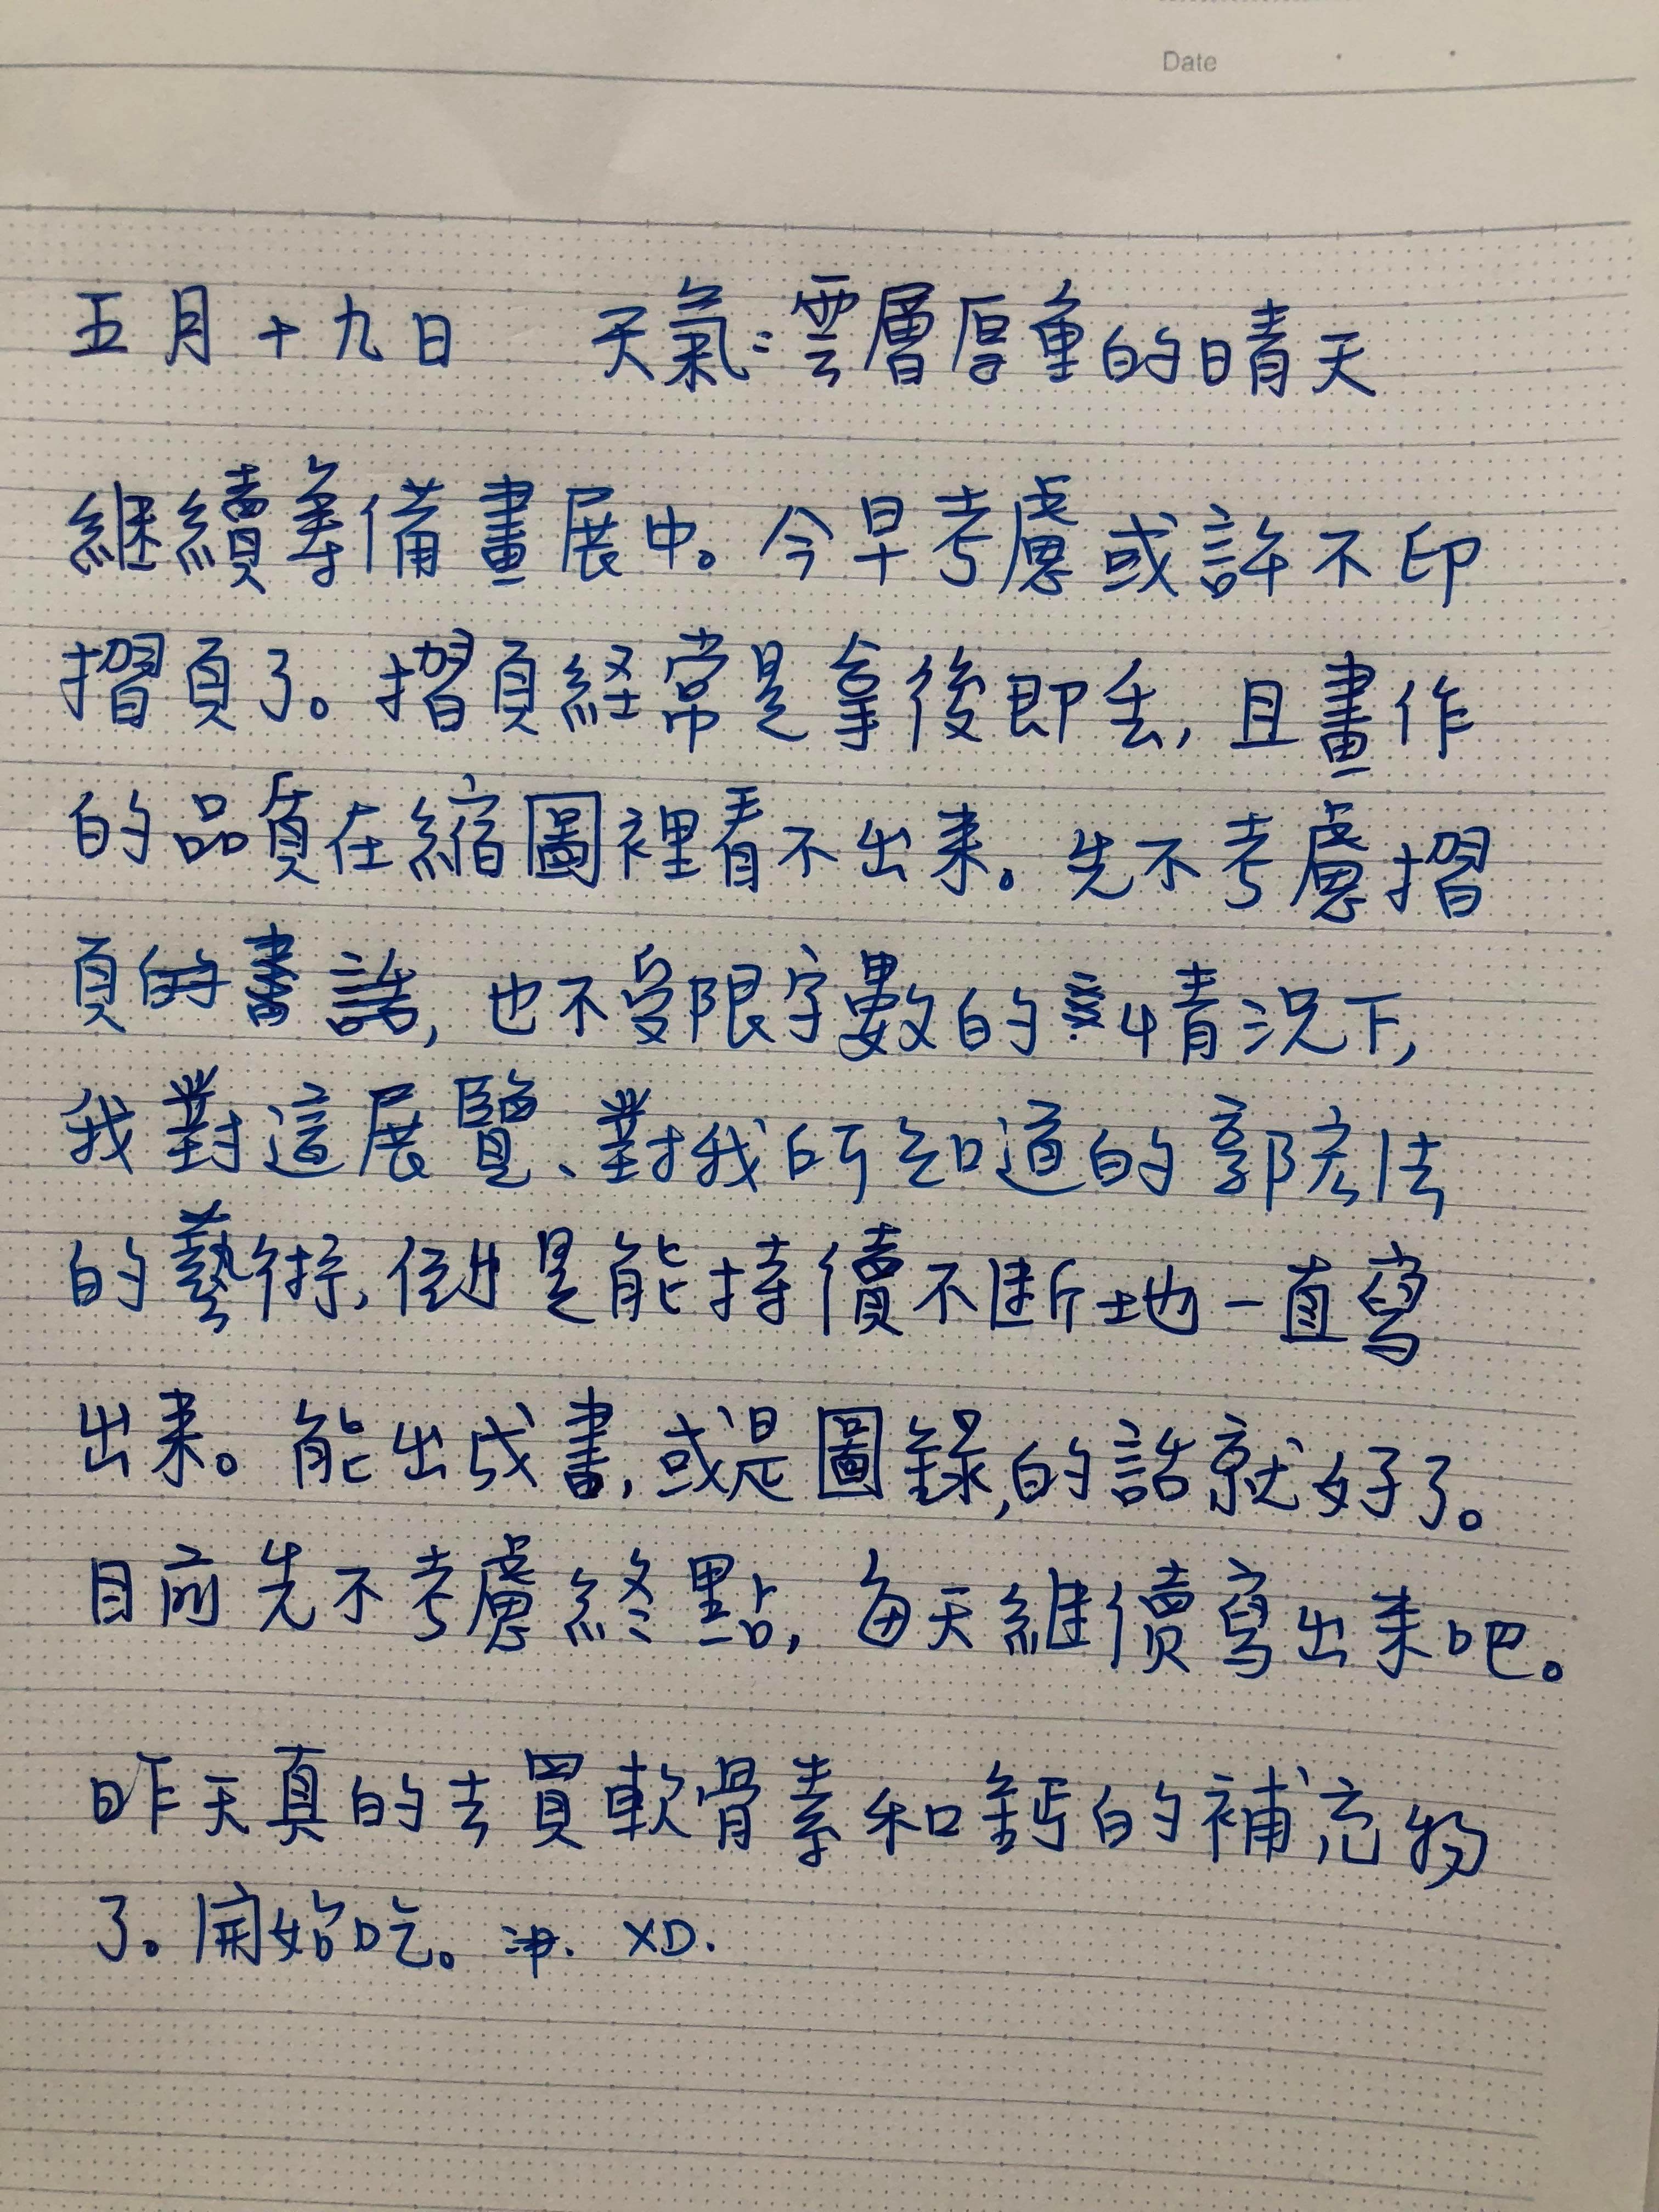 Date
五月十九日 天氣:雲層厚重的晴天
継續筹備畫展中。今早考慮或許不印
摺頁了。摺頁経常是拿後即丟,且畫作
的品質在縮圖裡看不出来。先不考慮摺
頁的書話,也不受限字數的情況下,
我對這展覽、對我所知道的郭宏法
的藝術,倒是能持續不断地一直寫
出来。能出成書,或是圖錄,的話就好了。
目前先不考慮終點,每天継續寫出来吧。
昨天真的去買軟骨素和鈣的補充物
了。開始吃。XD.